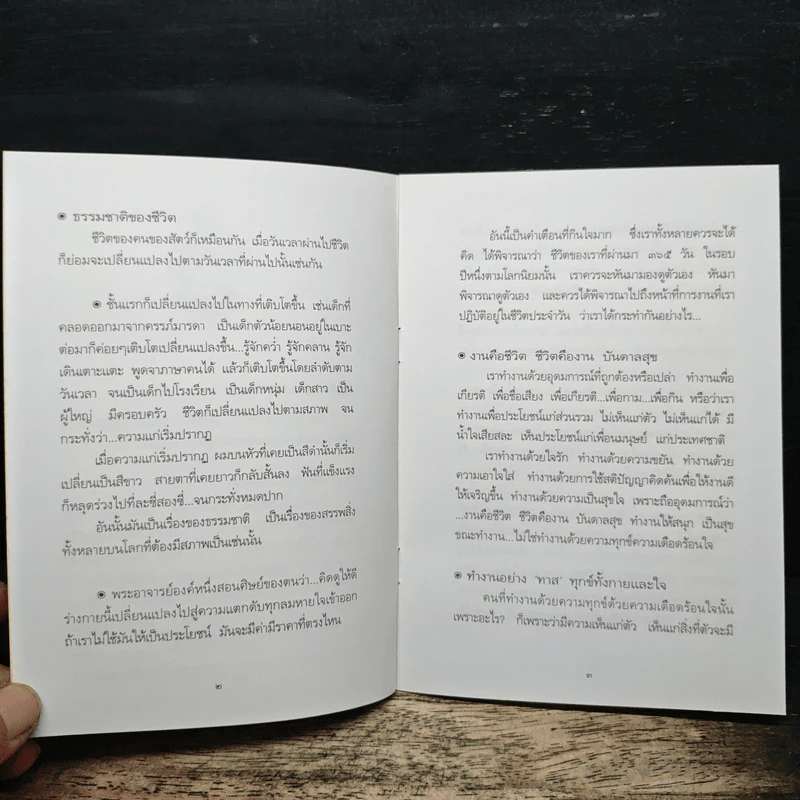 ◉ ธรรมชาติของชีวิต
ชีวิตของคนของสัตว์ก็เหมือนกัน เมื่อวันเวลาผ่านไปชีวิต
ก็ย่อมจะเปลี่ยนแปลงไปตามวันเวลาที่ผ่านไปนั้นเช่นกัน
◉ ชั้นแรกก็เปลี่ยนแปลงไปในทางที่เติบโตขึ้น เช่นเด็กที่
คลอดออกมาจากครรภ์มารดา เป็นเด็กตัวน้อยนอนอยู่ในเบาะ
ต่อมาก็ค่อยๆเติบโตเปลี่ยนแปลงขึ้น...รู้จักคว่ำ รู้จักคลาน รู้จัก
เดินเตาะแตะ พูดจาภาษาคนได้ แล้วก็เติบโตขึ้นโดยลำดับตาม
วันเวลา จนเป็นเด็กไปโรงเรียน เป็นเด็กหนุ่ม เด็กสาว เป็น
ผู้ใหญ่ มีครอบครัว ชีวิตก็เปลี่ยนแปลงไปตามสภาพ จน
กระทั่งว่า...ความแก่เริ่มปรากฏ
เมื่อความแก่เริ่มปรากฏ ผมบนหัวที่เคยเป็นสีดำนั้นก็เริ่ม
เปลี่ยนเป็นสีขาว สายตาที่เคยยาวก็กลับสั้นลง ฟันที่แข็งแรง
ก็หลุดร่วงไปที่ละซี่สองซี่...จนกระทั่งหมดปาก
อันนั้นมันเป็นเรื่องของธรรมชาติ เป็นเรื่องของสรรพสิ่ง
ทั้งหลายบนโลกที่ต้องมีสภาพเป็นเช่นนั้น
◉ พระอาจารย์องค์หนึ่งสอนศิษย์ของตนว่า...คิดดูให้ดี
ร่างกายนี้เปลี่ยนแปลงไปสู่ความแตกดับทุกลมหายใจเข้าออก
ถ้าเราไม่ใช้มันให้เป็นประโยชน์ มันจะมีค่ามีราคาที่ตรงไหน
๒
อันนี้เป็นคำเตือนที่กินใจมาก ซึ่งเราทั้งหลายควรจะได้
คิด ได้พิจารณาว่า ชีวิตของเราที่ผ่านมา ๓๖๕ วัน ในรอบ
ปีหนึ่งตามโลกนิยมนั้น เราควรจะหันมามองดูตัวเอง หันมา
พิจารณาดูตัวเอง และควรได้พิจารณาไปถึงหน้าที่การงานที่เรา
ปฏิบัติอยู่ในชีวิตประจำวัน ว่าเราได้กระทำกันอย่างไร...
◉ งานคือชีวิต ชีวิตคืองาน บันดาลสุข
เราทำงานด้วยอุดมการณ์ที่ถูกต้องหรือเปล่า ทำงานเพื่อ
เกียรติ เพื่อชื่อเสียง เพื่อเกียรติ...เพื่อกาม...เพื่อกิน หรือว่าเรา
ทำงานเพื่อประโยชน์แก่ส่วนรวม ไม่เห็นแก่ตัว ไม่เห็นแก่ได้ มี
น้ำใจเสียสละ เห็นประโยชน์แก่เพื่อนมนุษย์ แก่ประเทศชาติ
เราทำงานด้วยใจรัก ทำงานด้วยความขยัน ทำงานด้วย
ความเอาใจใส่ ทำงานด้วยการใช้สติปัญญาคิดค้นเพื่อให้งานดี
ให้เจริญขึ้น ทำงานด้วยความเป็นสุขใจ เพราะถืออุดมการณ์ว่า
...งานคือชีวิต ชีวิตคืองาน บันดาลสุข ทำงานให้สนุก เป็นสุข
ขณะทำงาน...ไม่ใช่ทำงานด้วยความทุกข์ความเดือดร้อนใจ
◉ ทำงานอย่าง 'ทาส' ทุกข์ทั้งกายและใจ
คนที่ทำงานด้วยความทุกข์ด้วยความเดือดร้อนใจนั้น
เพราะอะไร? ก็เพราะว่ามีความเห็นแก่ตัว เห็นแก่สิ่งที่ตัวจะมี
๓